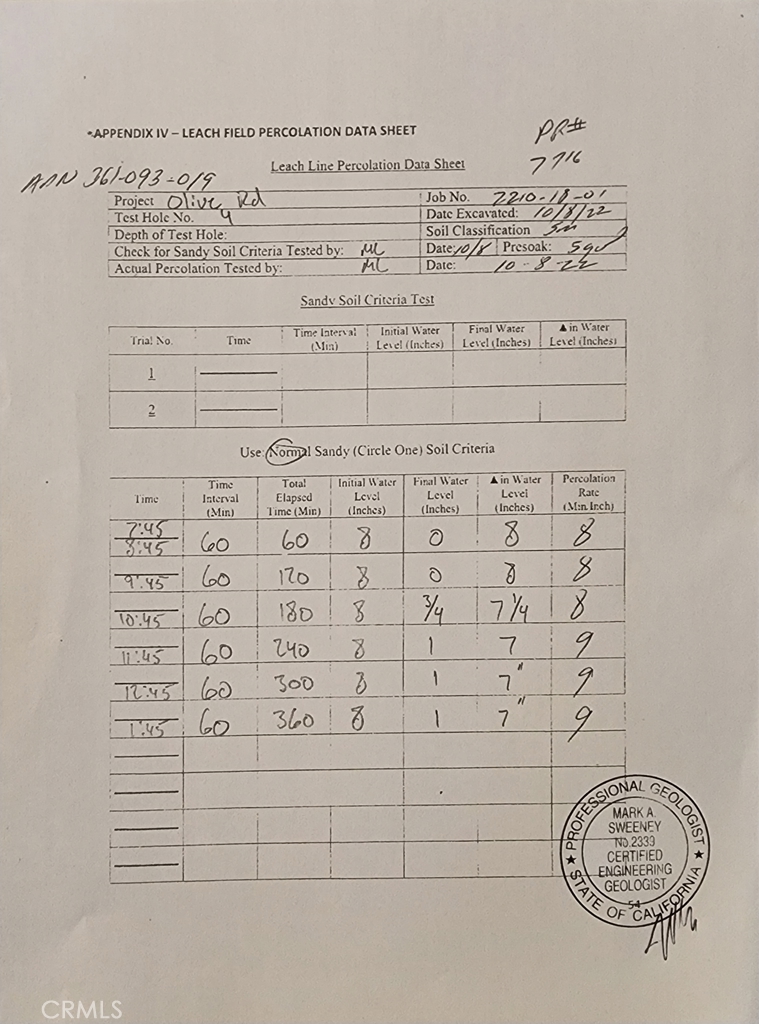 APPENDIX IV – LEACH FIELD PERCOLATION DATA SHEET
PR#
7716
Leach Line Percolation Data Sheet
APN 361-093-019
Project Olive Rd Job No. 2210-18-01
Test Hole No. 4 Date Excavated: 10/8/22
Depth of Test Hole: Soil Classification Sm
Check for Sandy Soil Criteria Tested by: ML Date: 10/8 Presoak: 5gal
Actual Percolation Tested by: ML Date: 10-8-22
Sandy Soil Criteria Test
Trial No. Time Time Interval (Min) Initial Water Level (Inches) Final Water Level (Inches) ▲ in Water Level (Inches)
1
2
Use: Normal Sandy (Circle One) Soil Criteria
Time Time Interval (Min) Total Elapsed Time (Min) Initial Water Level (Inches) Final Water Level (Inches) ▲ in Water Level (Inches) Percolation Rate (Min. Inch)
7:45
8:45 60 60 8 0 8 8
9:45 60 120 8 0 8 8
10:45 60 180 8 3/4 7 1/4 8
11:45 60 240 8 1 7 9
12:45 60 300 8 1 7" 9
1:45 60 360 8 1 7" 9
PROFESSIONAL GEOLOGIST
MARK A.
SWEENEY
No. 2333
CERTIFIED
ENGINEERING
GEOLOGIST
STATE OF CALIFORNIA
CRMLS